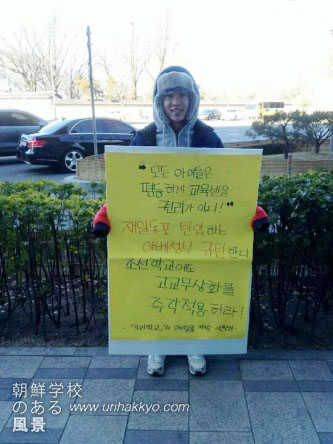 "모든 아이들은
평등하게 교육받을
권리가 있다!"
재일동포 탄압하는
아베정부 규탄한다
조선학교에도
고교무상화를
즉각 적용하라!
아이들을
朝鮮学校
のある www.urihakkyo.com
風景